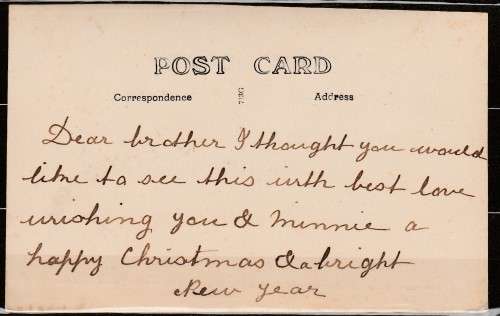 POST CARD
Correspondence Address
Dear brother I thought you would
like to see this with best love
wishing you & Minnie a
happy Christmas & a bright
New year